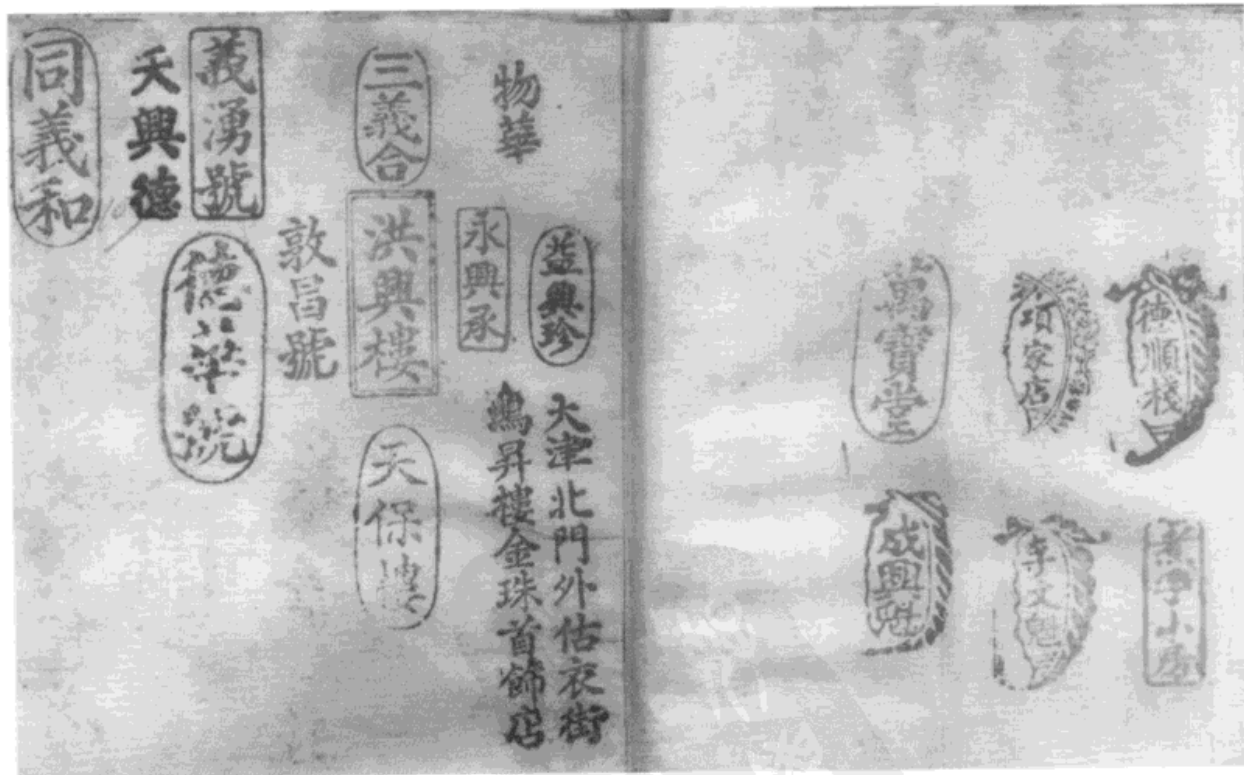 德順棧
項家店
萬寶堂
李文魁
成興甡
物華
益興珍
天津北門外估衣街
鴻昇樓金珠首飾店
永興承
三義合
洪興樓
天保樓
敦昌號
義湧號
德華號
天興德
同義和